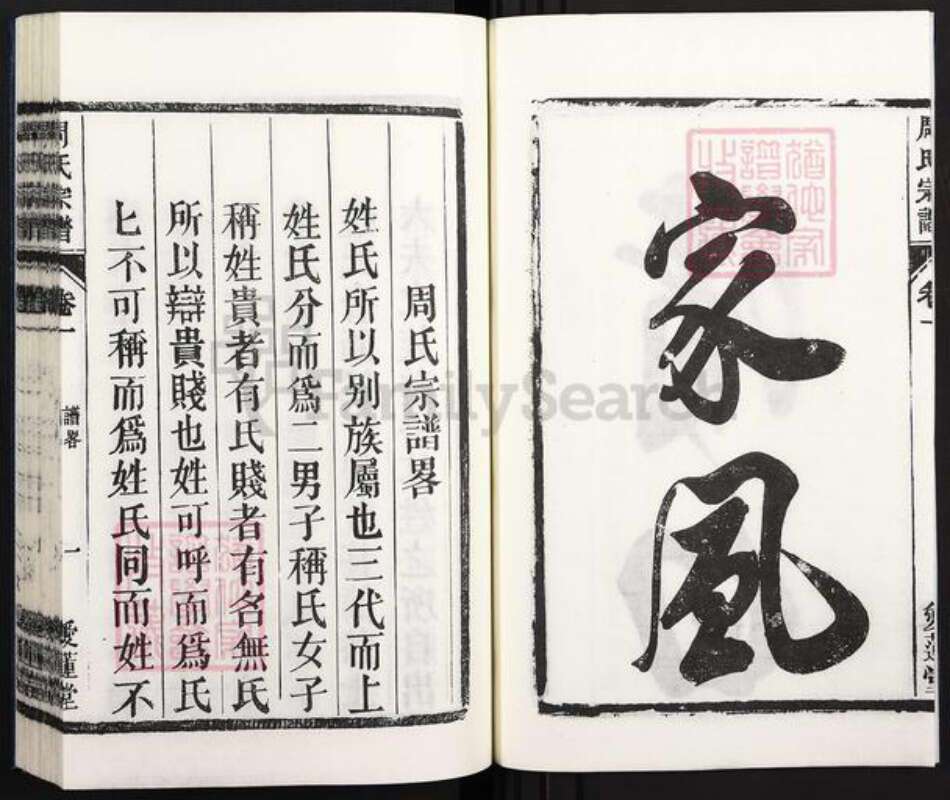 家風
周氏宗譜
卷一
愛蓮堂
周氏宗譜畧
姓氏所以别族屬也三代而上
姓氏分而爲二男子稱氏女子
稱姓貴者有氏賤者有名無氏
所以辯貴賤也姓可呼而爲氏
匕不可稱而爲姓氏同而姓不
周氏宗譜
卷一
譜畧
一
愛蓮堂
FamilySearch